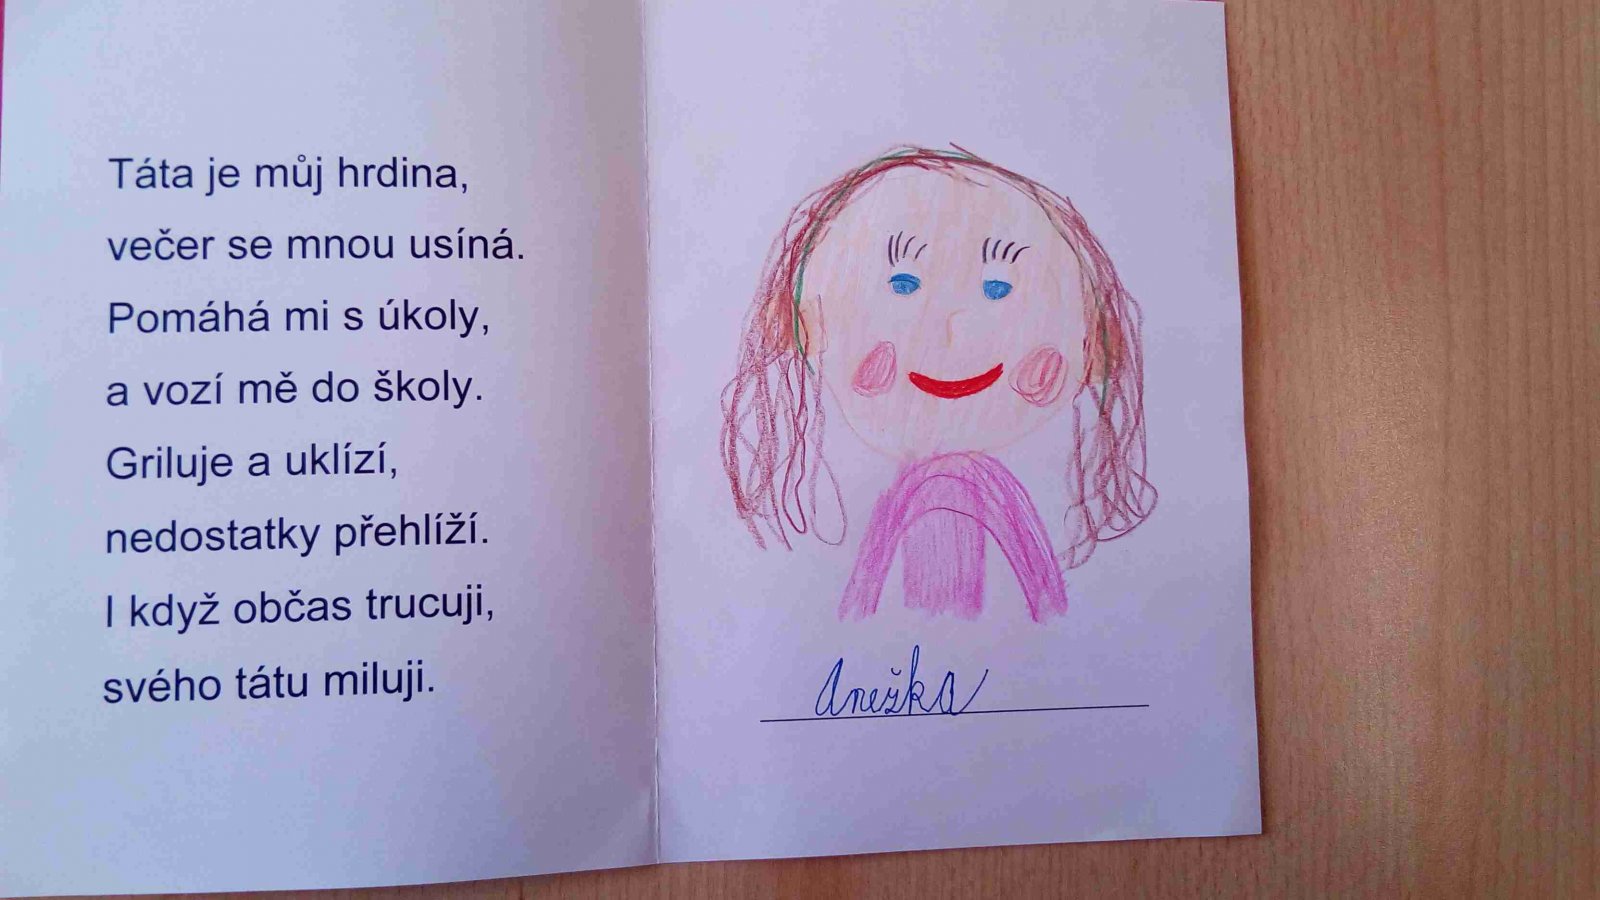 Táta je můj hrdina,
večer se mnou usíná.
Pomáhá mi s úkoly,
a vozí mě do školy.
Griluje a uklízí,
nedostatky přehlíží.
I když občas trucuji,
svého tátu miluji.
Anežka